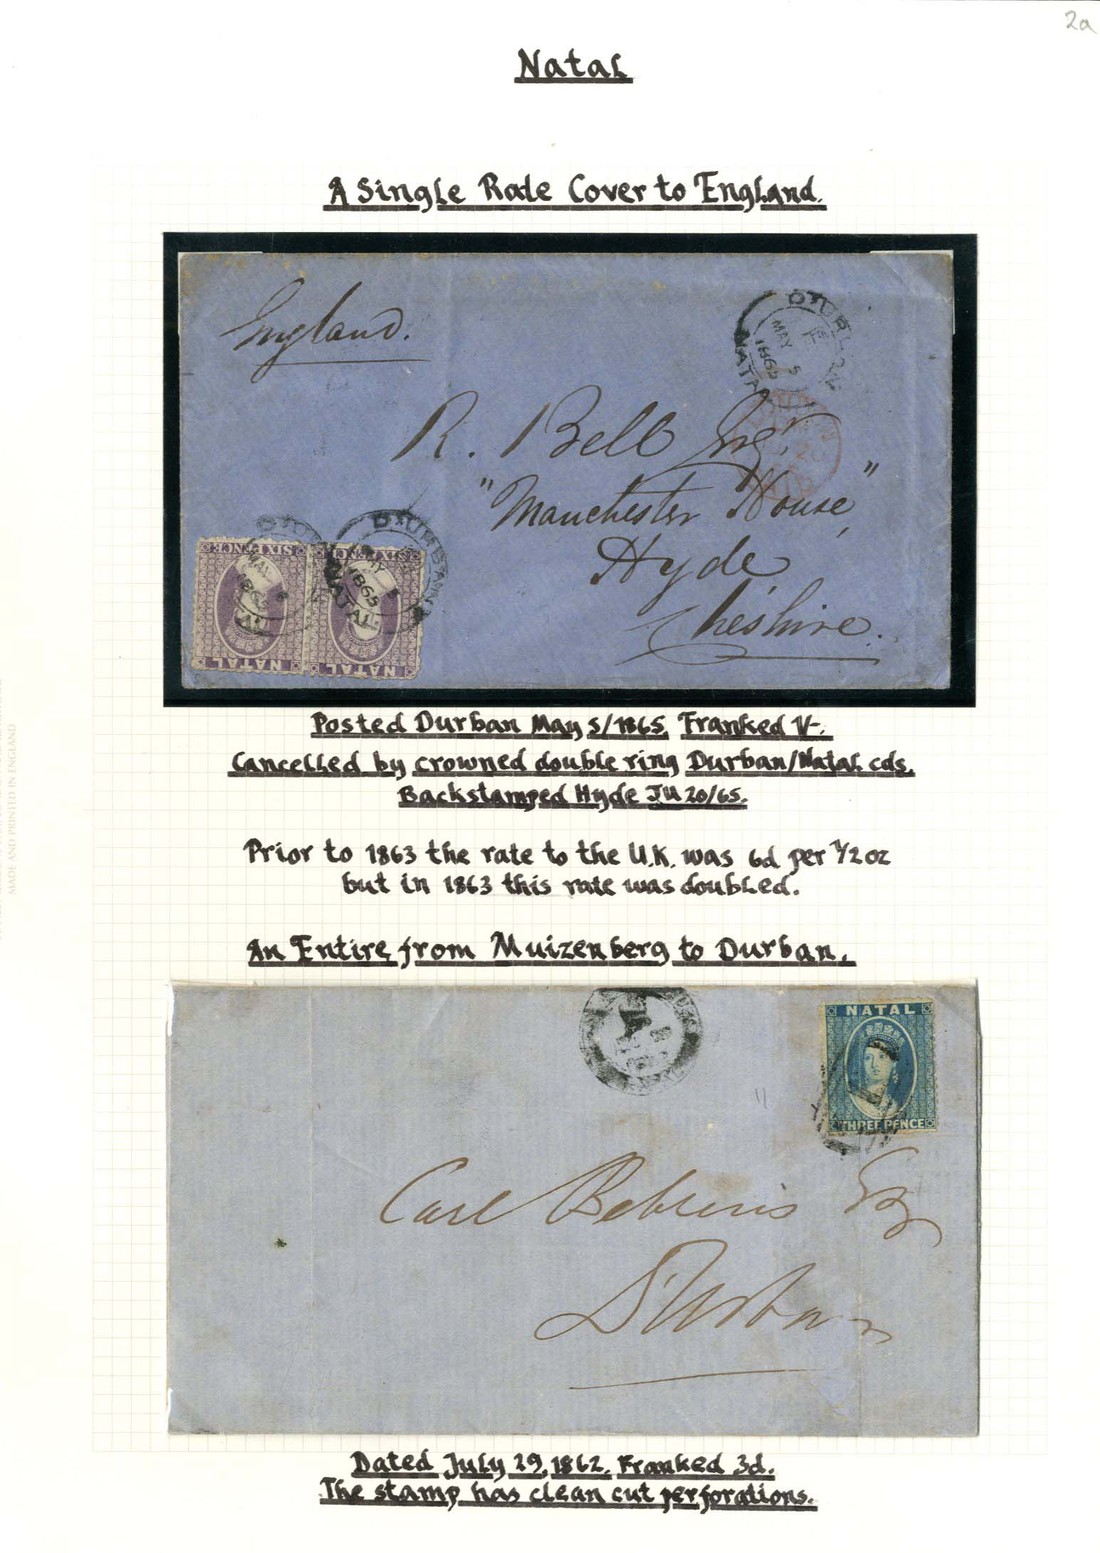 2a
Natal
A Single Rate Cover to England.
England.
DURBAN
MAY 5
1865
NATAL
R. Bell Esqr.
"Manchester House"
Hyde
Cheshire.
SIX PENCE
SIX PENCE
NATAL
NATAL
DURBAN
MAY
1865
NATAL
Posted Durban May 5/1865, Franked 1/-.
Cancelled by crowned double ring Durban/Natal cds.
Backstamped Hyde JU 20/65.
Prior to 1863 the rate to the U.K. was 6d per 1/2 oz
but in 1863 this rate was doubled.
An Entire from Muizenberg to Durban.
NATAL
THREE PENCE
Carl Behrens Esq
D'Urban
Dated July 29, 1862. Franked 3d.
The stamp has clean cut perforations.
MADE AND PRINTED IN ENGLAND